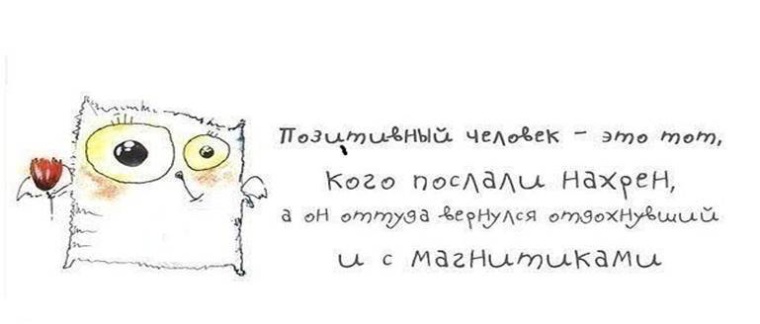 Позитивный человек - это тот,
кого послали нахрен,
а он оттуда вернулся отдохнувший
и с магнитиками